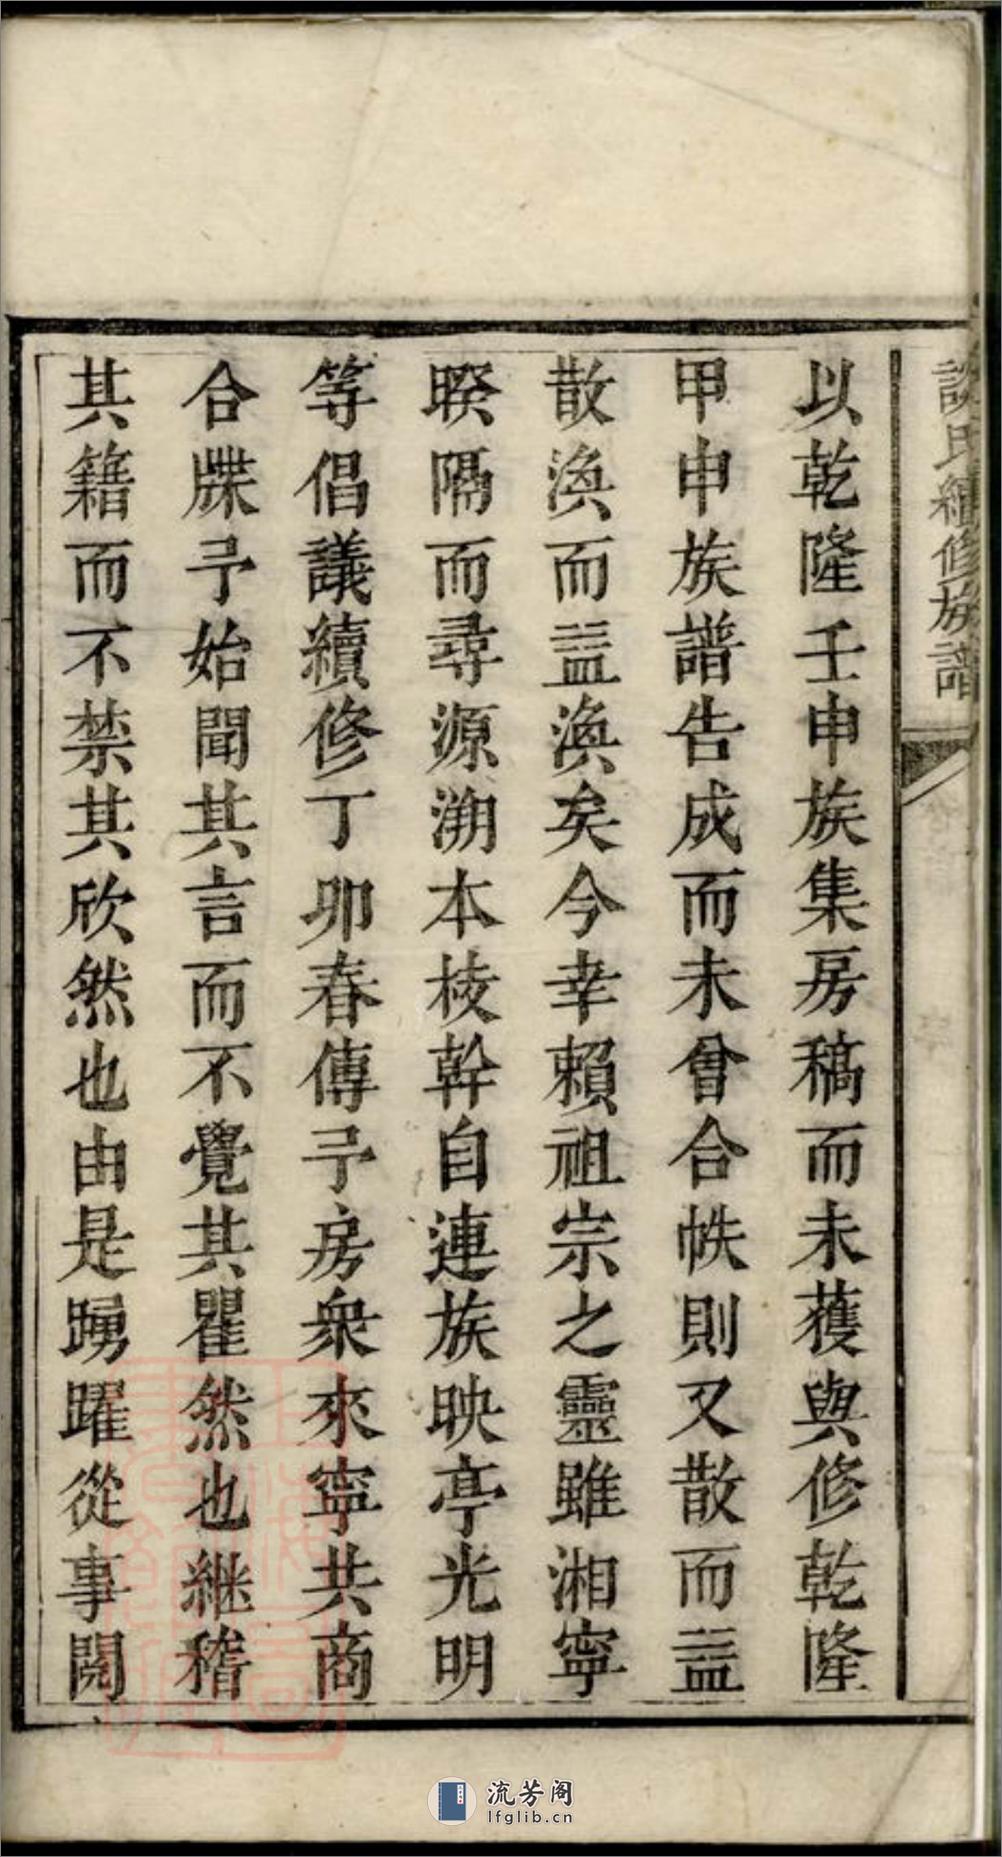 談氏續修族譜
以乾隆壬申族集房稿而未獲與修乾隆
甲申族譜告成而未曾合帙則又散而益
散渙而益渙矣今幸賴祖宗之靈雖湘寧
暌隔而尋源溯本枝幹自連族映亭光明
等倡議續修丁卯春傳予房衆來寧共商
合牒予始聞其言而不覺其瞿然也継稽
其籍而不禁其欣然也由是踴躍從事閱
流芳阁
lfglib.cn